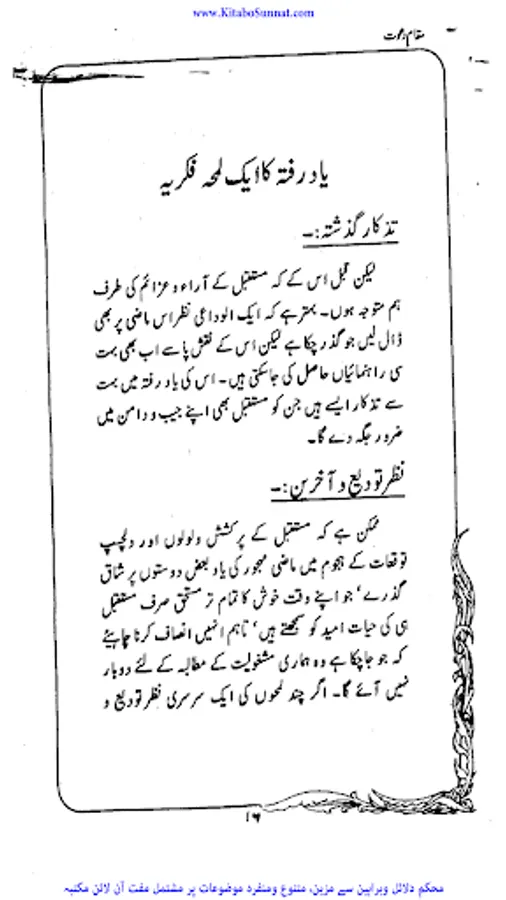 www.KitaboSunnat.com
مقام دعوت
یاد رفتہ کا ایک لمحہ فکریہ
تذکار گذشتہ:۔
لیکن قبل اس کے کہ مستقبل کے آراء و عزائم کی طرف
ہم متوجہ ہوں۔ بہتر ہے کہ ایک الوداعی نظر اس ماضی پر بھی
ڈال لیں جو گذر چکا ہے لیکن اس کے نقش پا سے اب بھی بہت
سی راہنمائیاں حاصل کی جاسکتی ہیں۔ اس کی یاد رفتہ میں بہت
سے تذکار ایسے ہیں جن کو مستقبل بھی اپنے جیب و دامن میں
ضرور جگہ دے گا۔
نظر تودیع و آخرین:۔
ممکن ہے کہ مستقبل کے پرکشش ولولوں اور دلچسپ
توقعات کے ہجوم میں ماضی مہجور کی یاد بعض دوستوں پر شاق
گذرے' جو اپنے وقت خوش کا تمام تر مستحق صرف مستقبل
ہی کی حیات امید کو سمجھتے ہیں' تاہم انہیں انصاف کرنا چاہیئے
کہ جو جاچکا ہے وہ ہماری مشغولیت کے مطالبہ کے لئے دوبارہ
نہیں آئے گا۔ اگر چند لمحوں کی ایک سرسری نظر تودیع و
۱۶
محکم دلائل وبراہین سے مزین، متنوع ومنفرد موضوعات پر مشتمل مفت آن لائن مکتبہ